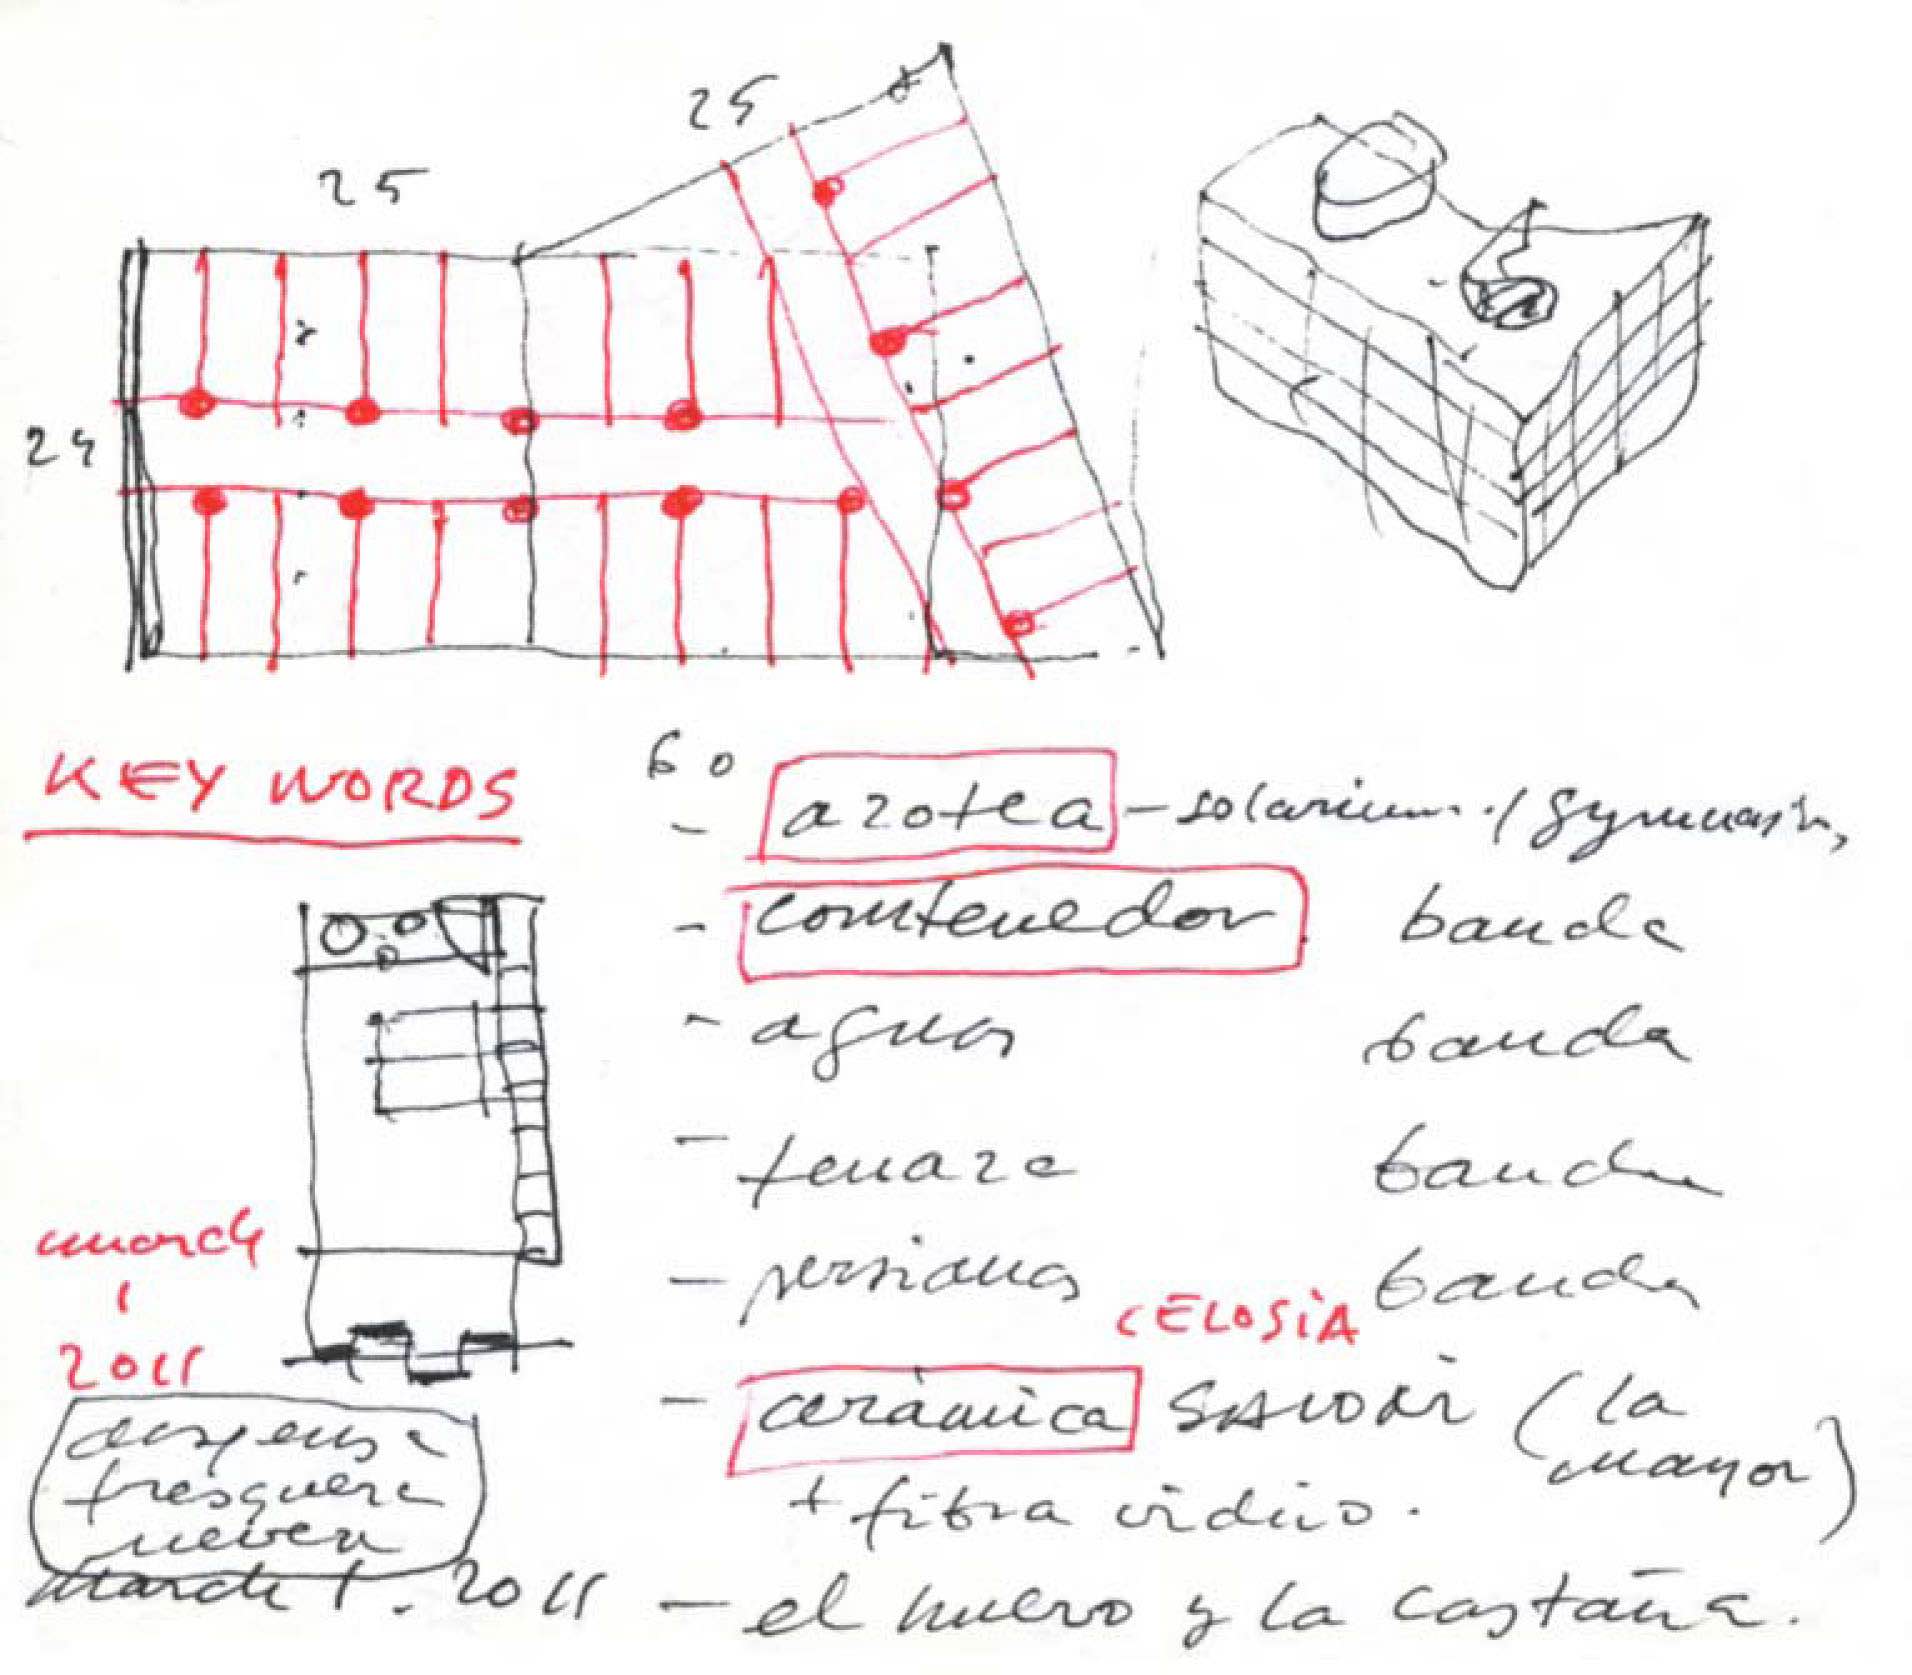 25
25
24
KEY WORDS
60
- azotea - solarium / gymnasio,
- contenedor banda
- agua banda
- terraza banda
- persiana banda
march
1
2011
CELOSÍA
- cerámica (la
mayor)
+ fibra vidrio.
despensa
fresquera
nevera
March 1. 2011
- el huevo y la castaña.